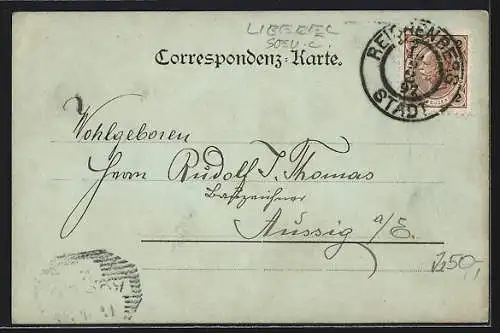 LIBEREC
SOSU. C.
Correspondenz-Karte.
REICHENBERG
STADT
Wohlgeboren
Herrn Rudolf J. Thomas
Aussig a/E.